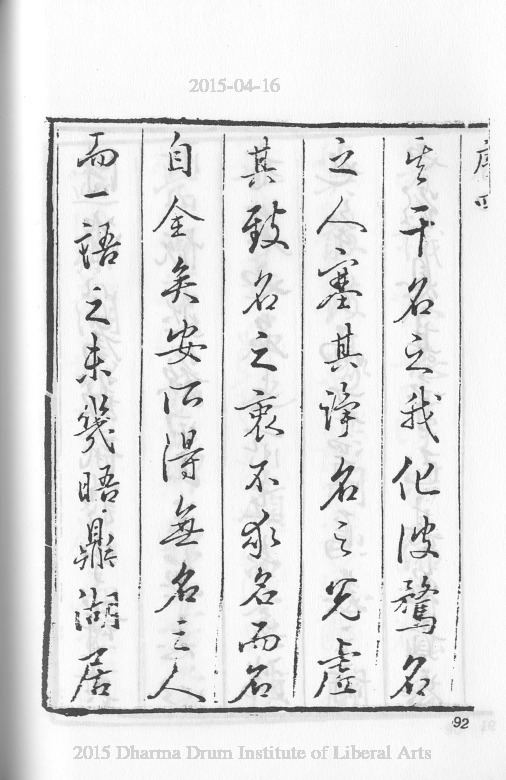 2015-04-16
序四
其干名之我化彼騖名
之人塞其諍名之兇虛
其致名之衷不求名而名
自全矣安所得無名之人
而一語之未幾晤鼎湖居
92
2015 Dharma Drum Institute of Liberal Arts